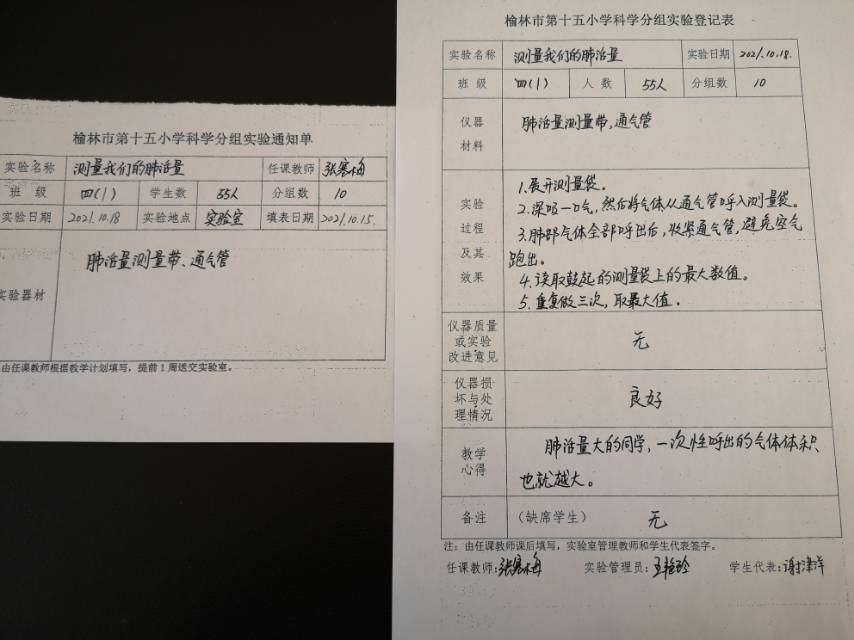 榆林市第十五小学科学分组实验通知单
实验名称 测量我们的肺活量 任课教师 张寒梅
班级 四(1) 学生数 55人 分组数 10
实验日期 2021.10.18 实验地点 实验室 填表日期 2021.10.15.
实验器材 肺活量测量带、通气管
由任课教师根据教学计划填写，提前1周送交实验室。
榆林市第十五小学科学分组实验登记表
实验名称 测量我们的肺活量 实验日期 2021.10.18.
班级 四(1) 人数 55人 分组数 10
仪器材料 肺活量测量带，通气管
实验过程及其效果
1.展开测量袋。
2.深吸一口气，然后将气体从通气管呼入测量袋。
3.肺部气体全部呼出后，收紧通气管，避免空气
跑出。
4.读取鼓起的测量袋上的最大数值。
5.重复做三次，取最大值。
仪器质量或实验改进意见 无
仪器损坏与处理情况 良好
教学心得
肺活量大的同学，一次性呼出的气体体积
也就越大。
备注 （缺席学生） 无
注：由任课教师课后填写，实验室管理教师和学生代表签字。
任课教师：张寒梅 实验管理员：王艳玲 学生代表：谢津洋